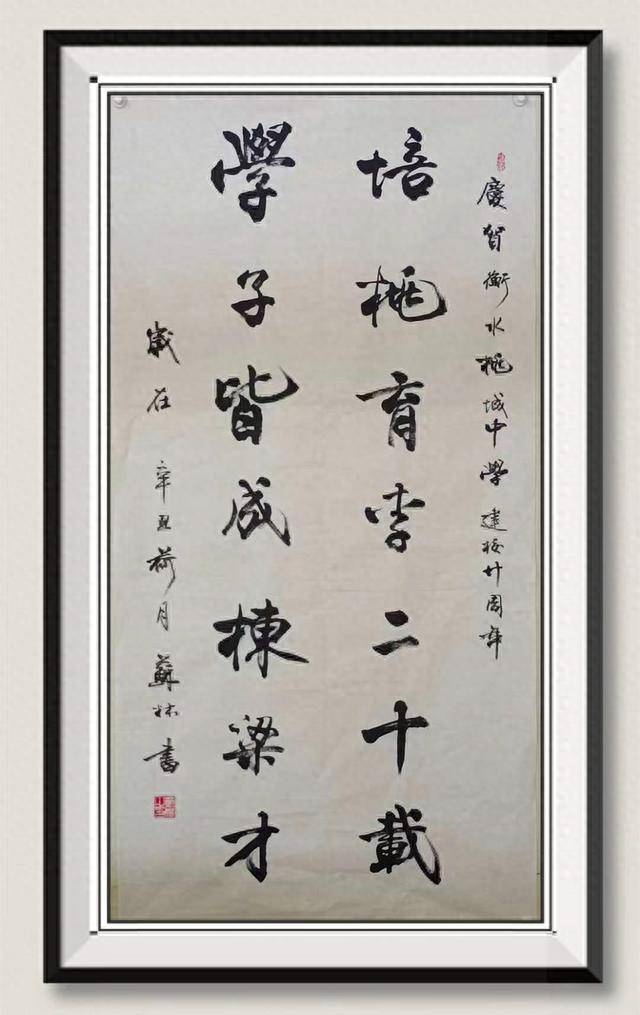 慶賀衡水桃城中學建校廿周年
培桃育李二十載
學子皆成棟梁才
歲在辛丑荷月蘇林書